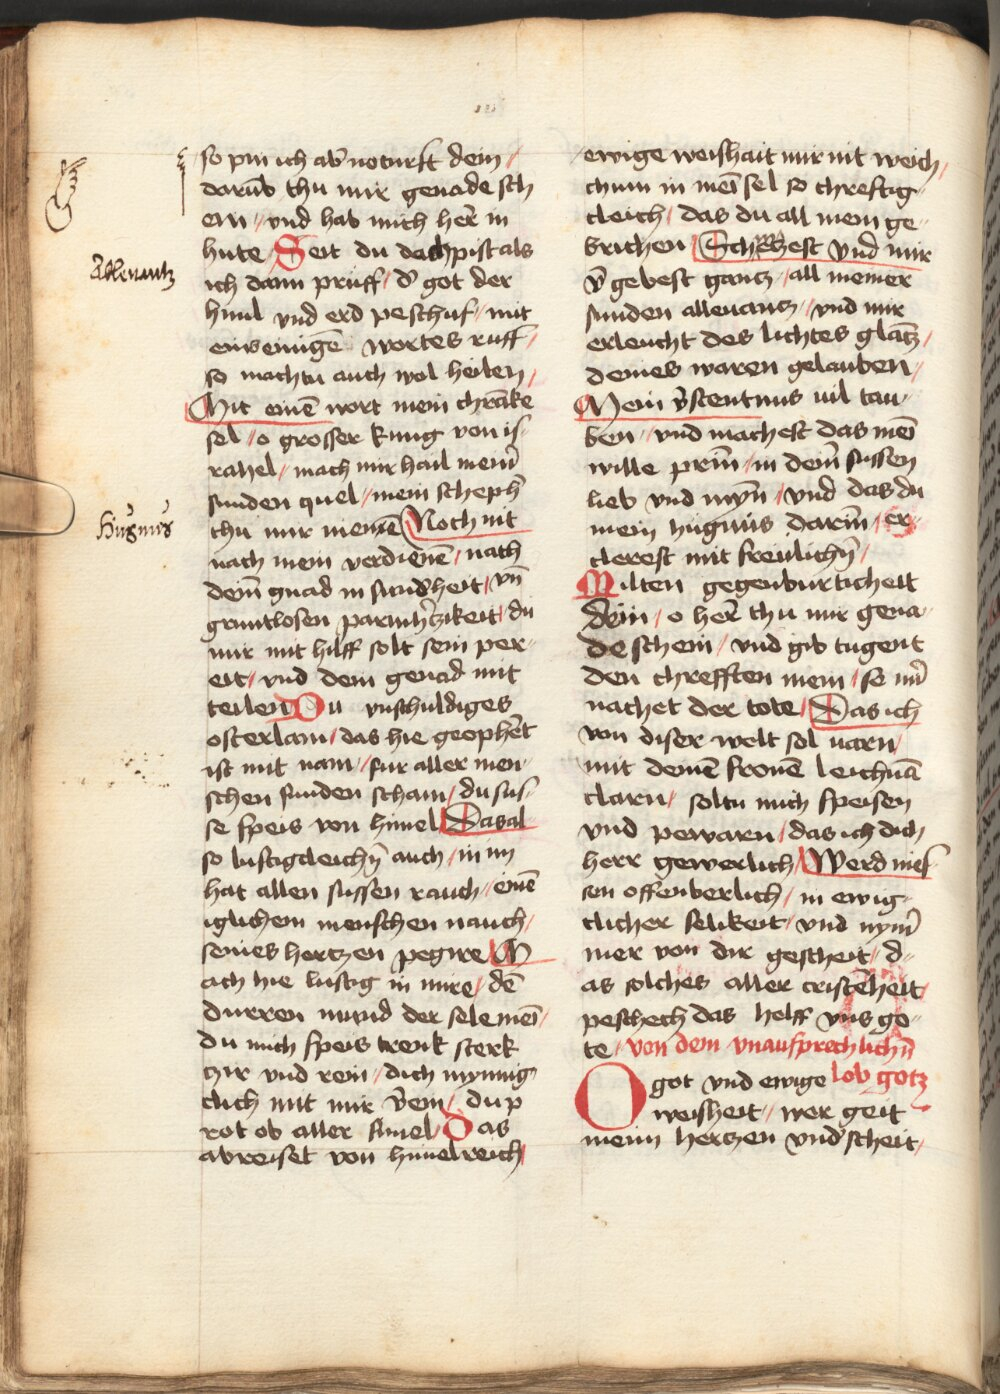 so pin ich ab᷑ noturft dein /
darūb thu mir genade sch
ein / vnd hab mich her̄ in
hute / Seit du dachpist als
Allenantz
ich dann prüff / d᷑ got der
himl vnd erd peschuf / mit
eins einigē wortes ruff /
so machtu auch wol heilen /
Mit einē wort mein chrāke
sel / o grosser kunig von is
rahel / mach mir hail meīn
sunden quel / mein scheph᷑
Hugnus
thu mir meinē Noch nit
nach mein verdienē / nach
deīn gnad in sundheit / vn̄
gruntlosen parmh᷑zikeit / du
mir mit hilff solt sein per-
eit / vnd dein genad mit
teilen Du vnschuldiges
osterlam / das hie geoph᷑t
ist mit nam / fur aller men-
schen sunden scham / du sus-
se speis von himel Das al
so lustigcleich᷑ auch / in im
hat allen sussen rauch / einē
iglichem menschen nauch /
seines hertzen pegire M
ach hie lustig in mire / dē
durren mund der sele meī /
du mich speis trenk sterk
zir vnd rein / dich mynnig
clich mit mir v᷑ein / du p
rot ob aller simel Das
abreiset von himelreich /
ewige weishait mir nit weich /
chum in meī sel so chreftig
cleich / das du all mein ge-
brichen Schwechest vnd mir
v᷑gebest gantz / all meiner
sunden allenantz / vnd mir
erleucht des lichtes glātz /
deines waren gelauben /
Mein v᷑stentnus vil tau-
ben / vnd machest das meī
wille prīn / in deīn sussen
lieb vnd myn̄ / vnd das du
mein hugnus darīn / er-
clerest mit freulich᷑ /
Milten gegenburticheit
dein / o her̄ thu mir gena-
de schein / vnd gib tugent
den chrefften mein / so mir
nachet der tote / Das ich
von diser welt sol varn /
mit deinē fronē leichnā
clarn / soltu mich speisen
vnd pewarn / das ich dich
herr gewerlich / Werd nies-
sen offenberlich / in ewig-
clicher selikeit / vnd nym̄
mer von dir gescheit / d-
as solches aller cristēheit /
peschech das helff vns go-
te / von dem vnaufsprechlichn̄
lob gotz
O got vnd ewige
weisheit / wer geit
meim hertzen vnd᷑scheit /